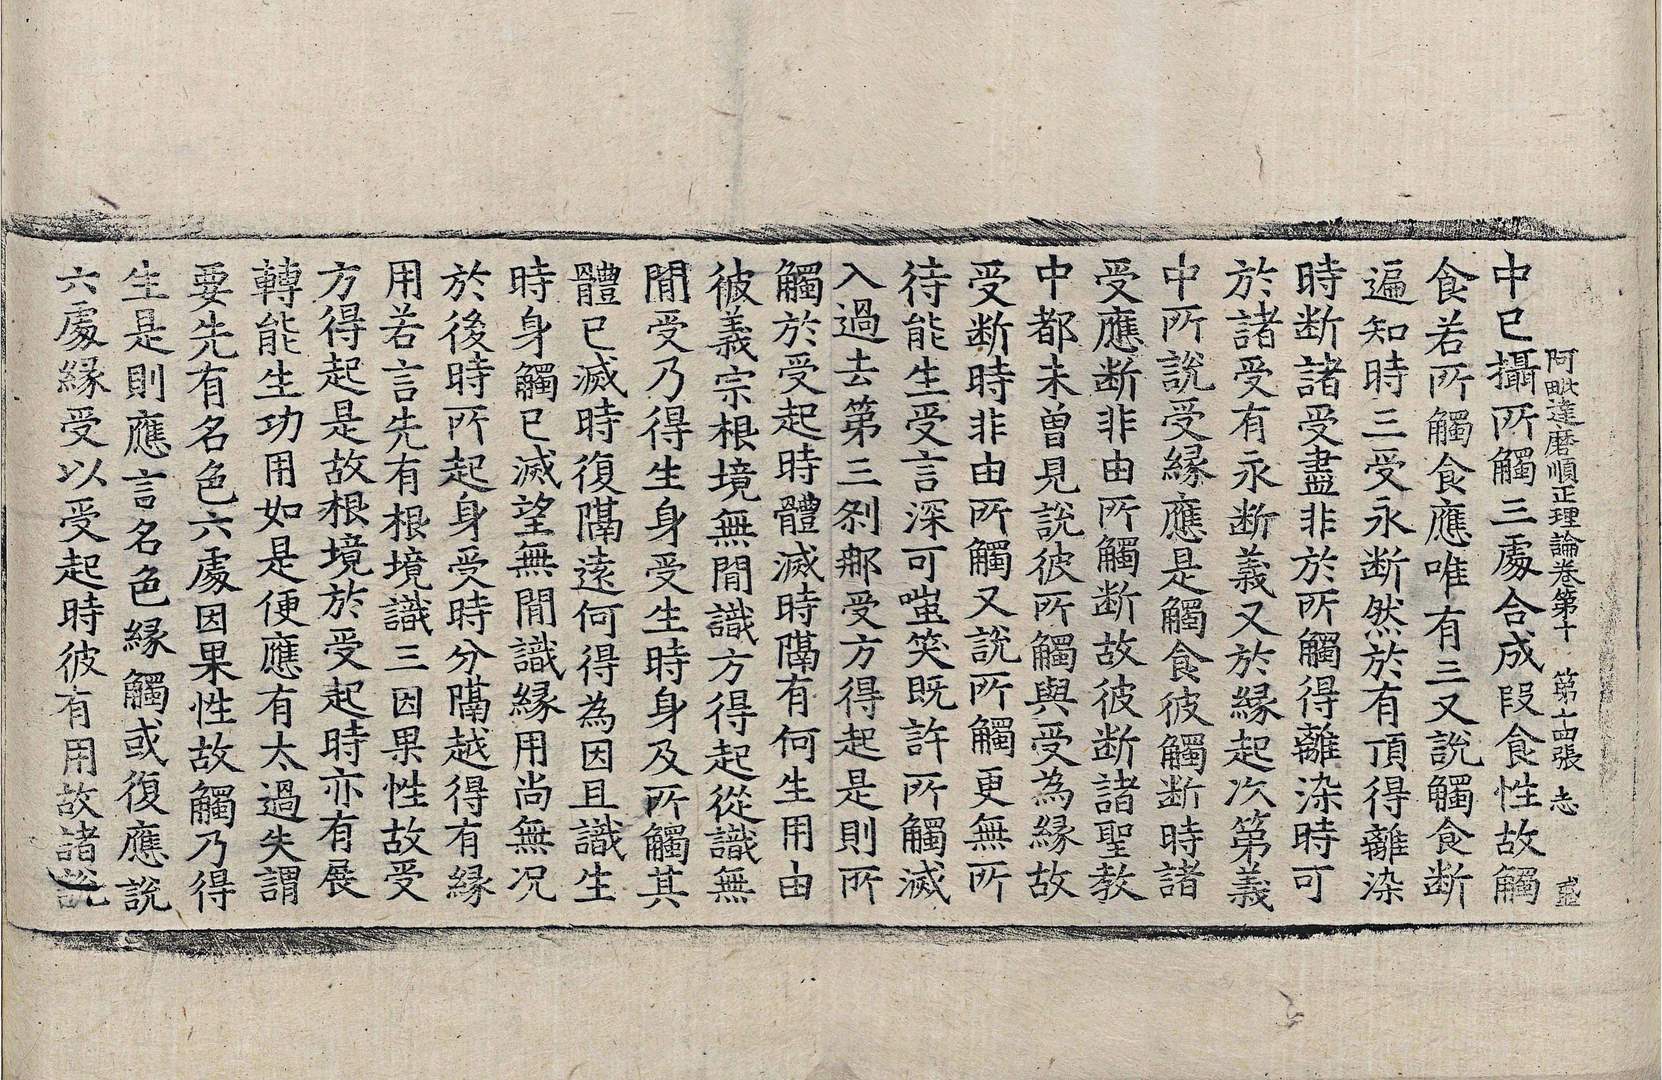 阿毗達磨順正理論卷第十 第十四張 志 盛
中已攝所觸三處合成段食性故觸
食若所觸食應唯有三又說觸食斷
遍知時三受永断然於有頂得離染
時断諸受盡非於所觸得離染時可
於諸受有永断義又於緣起次第義
中所說受緣應是觸食彼觸断時諸
受應断非由所觸断故彼断諸聖教
中都未曾見說彼所觸與受為緣故
受断時非由所觸又說所觸更無所
待能生受言深可嗤笑既許所觸滅
入過去第三刹那受方得起是則所
觸於受起時體滅時隔有何生用由
彼義宗根境無間識方得起從識無
間受乃得生身受生時身及所觸其
體已滅時復隔遠何得為因且識生
時身觸已滅望無間識緣用尚無况
於後時所起身受時分隔越得有緣
用若言先有根境識三因果性故受
方得起是故根境於受起時亦有展
轉能生功用如是便應有太過失謂
要先有名色六處因果性故觸乃得
生是則應言名色緣觸或復應說
六處緣受以受起時彼有用故諸說